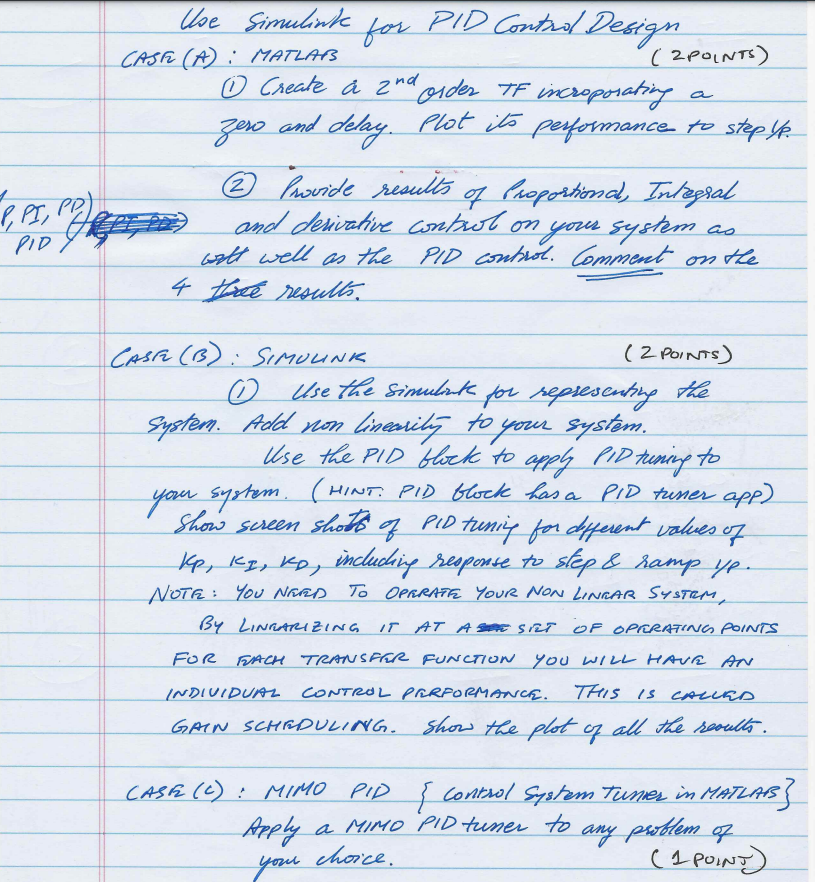 Use Simulink for PID Control Design
CASE (A) : MATLAB (2 POINTS)
① Create a 2nd order TF incroporating a
zero and delay. Plot its performance to step i/p.
② Provide results of Proportional, Integral
P, PI, PD) and derivative control on your system as
PID well as the PID control. Comment on the
4 results.
CASE (B) : SIMULINK (2 POINTS)
① Use the Simulink for representing the
system. Add non linearity to your system.
Use the PID block to apply PID tuning to
your system. (HINT: PID block has a PID tuner app)
Show screen shots of PID tuning for different values of
KP, KI, KD, including response to step & ramp i/p.
NOTE: YOU NEED TO OPERATE YOUR NON LINEAR SYSTEM,
BY LINEARIZING IT AT A SET OF OPERATING POINTS
FOR EACH TRANSFER FUNCTION YOU WILL HAVE AN
INDIVIDUAL CONTROL PERFORMANCE. THIS IS CALLED
GAIN SCHEDULING. Show the plot of all the results.
CASE (C) : MIMO PID { Control System Tuner in MATLAB}
Apply a MIMO PID tuner to any problem of
your choice. (1 POINT)